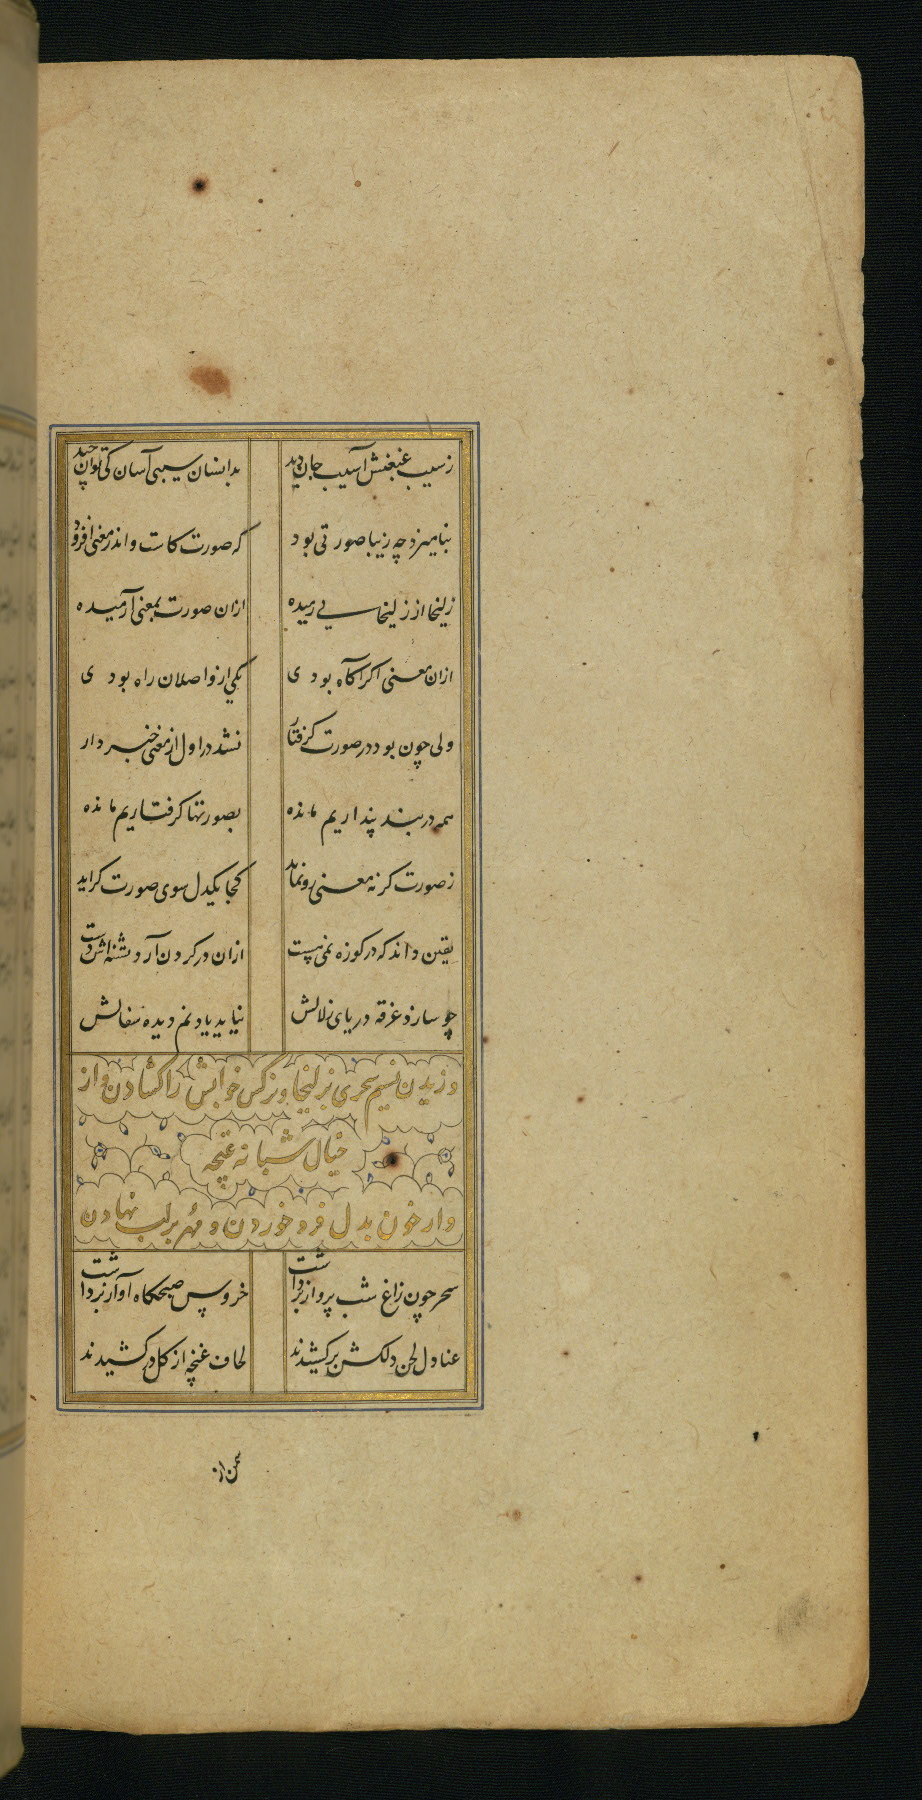 ز سیب غبغبش آسیب جان دید بدانسان سیبی آسان کی توان چید
بنامیزد چه زیبا صورتی بود که صورت کاست واندر معنی افزود
زلیخا از زلیخایی رمیده ازان صورت بمعنی آرمیده
ازان معنی اکر آکاه بودی یکی از واصلان راه بودی
ولی چون بود در صورت کرفتار نشد در اول از معنی خبردار
همه در بند پنداریم مانده بصورتها کرفتاریم مانده
ز صورت کر نه معنی رو نماید کجا یکدل سوی صورت کراید
یقین داند که در کوزه نمی هست ازان در کردن آرد تشنه اش دست
چو سازد غرقه دریای زلالش نیاید یاد نم دیده سفالش
وزیدن نسیم سحری بر زلیخا و نرکس خوابش را کشادن و از
خیال شبانه غنچه
وار خون بدل فرو خوردن و مهر بر لب نهادن
سحر چون زاغ شب پرواز برداشت خروس صبحکاه آواز برداشت
عنادل لحن دلکش برکشیدند لحاف غنچه از کل درکشیدند
سمن از